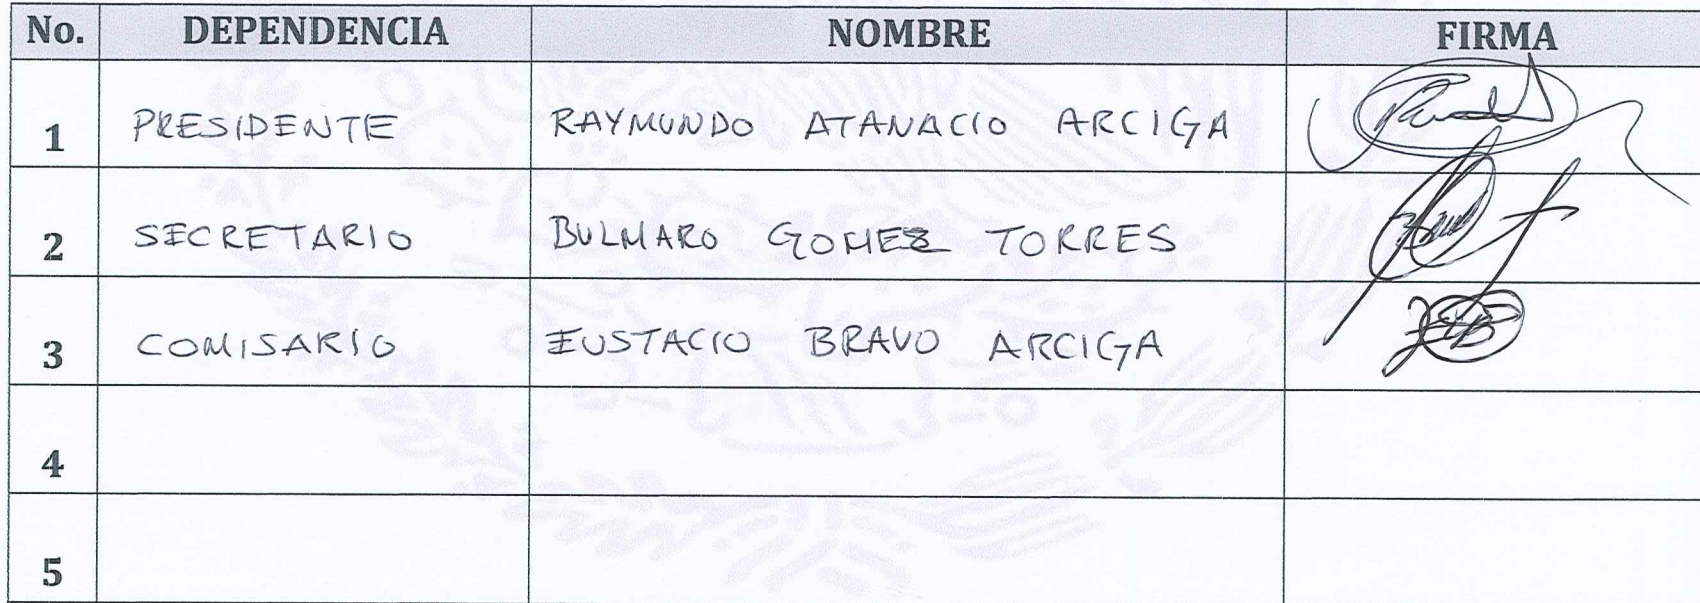 No. DEPENDENCIA NOMBRE FIRMA
1 PRESIDENTE RAYMUNDO ATANACIO ARCIGA
2 SECRETARIO BULMARO GOMEZ TORRES
3 COMISARIO EUSTACIO BRAVO ARCIGA
4
5